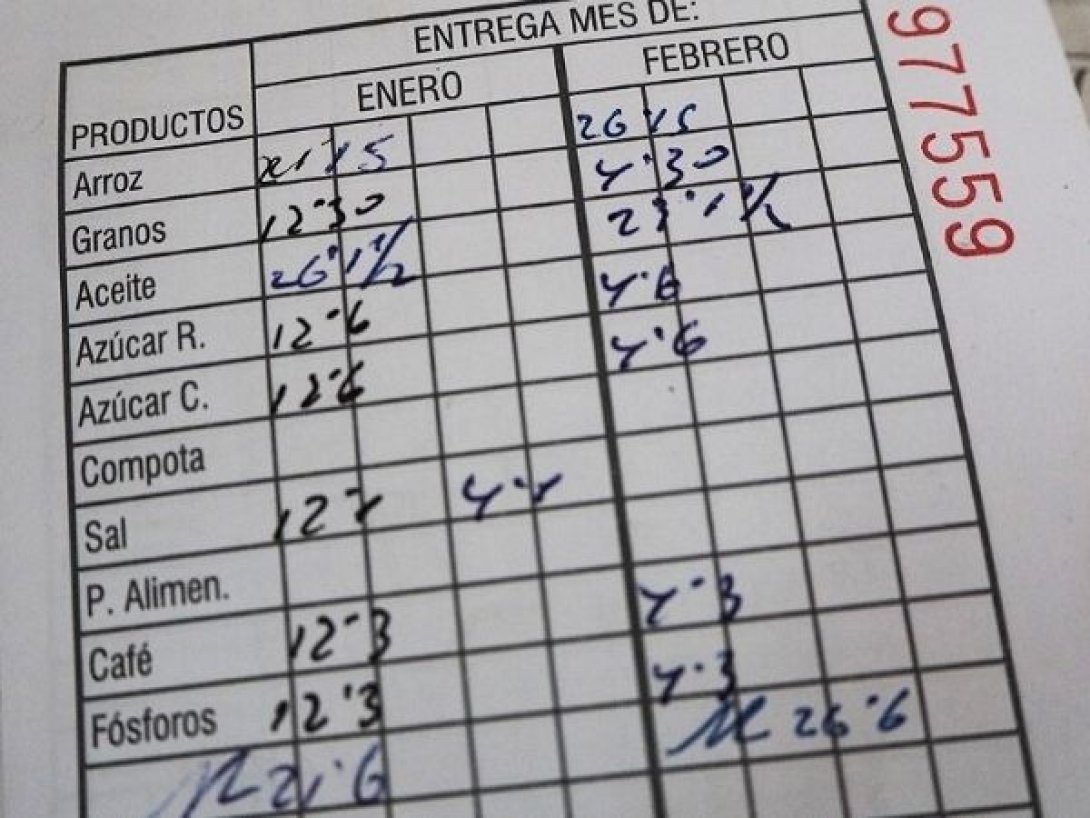 ENTREGA MES DE:
PRODUCTOS ENERO FEBRERO
977559
Arroz 21 15 26 15
Granos 12-30 4-30
Aceite 26-1 1/2 23-1 1/2
Azúcar R. 12-6 4-6
Azúcar C. 12-6 4-6
Compota
Sal 12 4-
P. Alimen.
Café 12-3 4-3
Fósforos 12-3 4-3
21-6 26-6